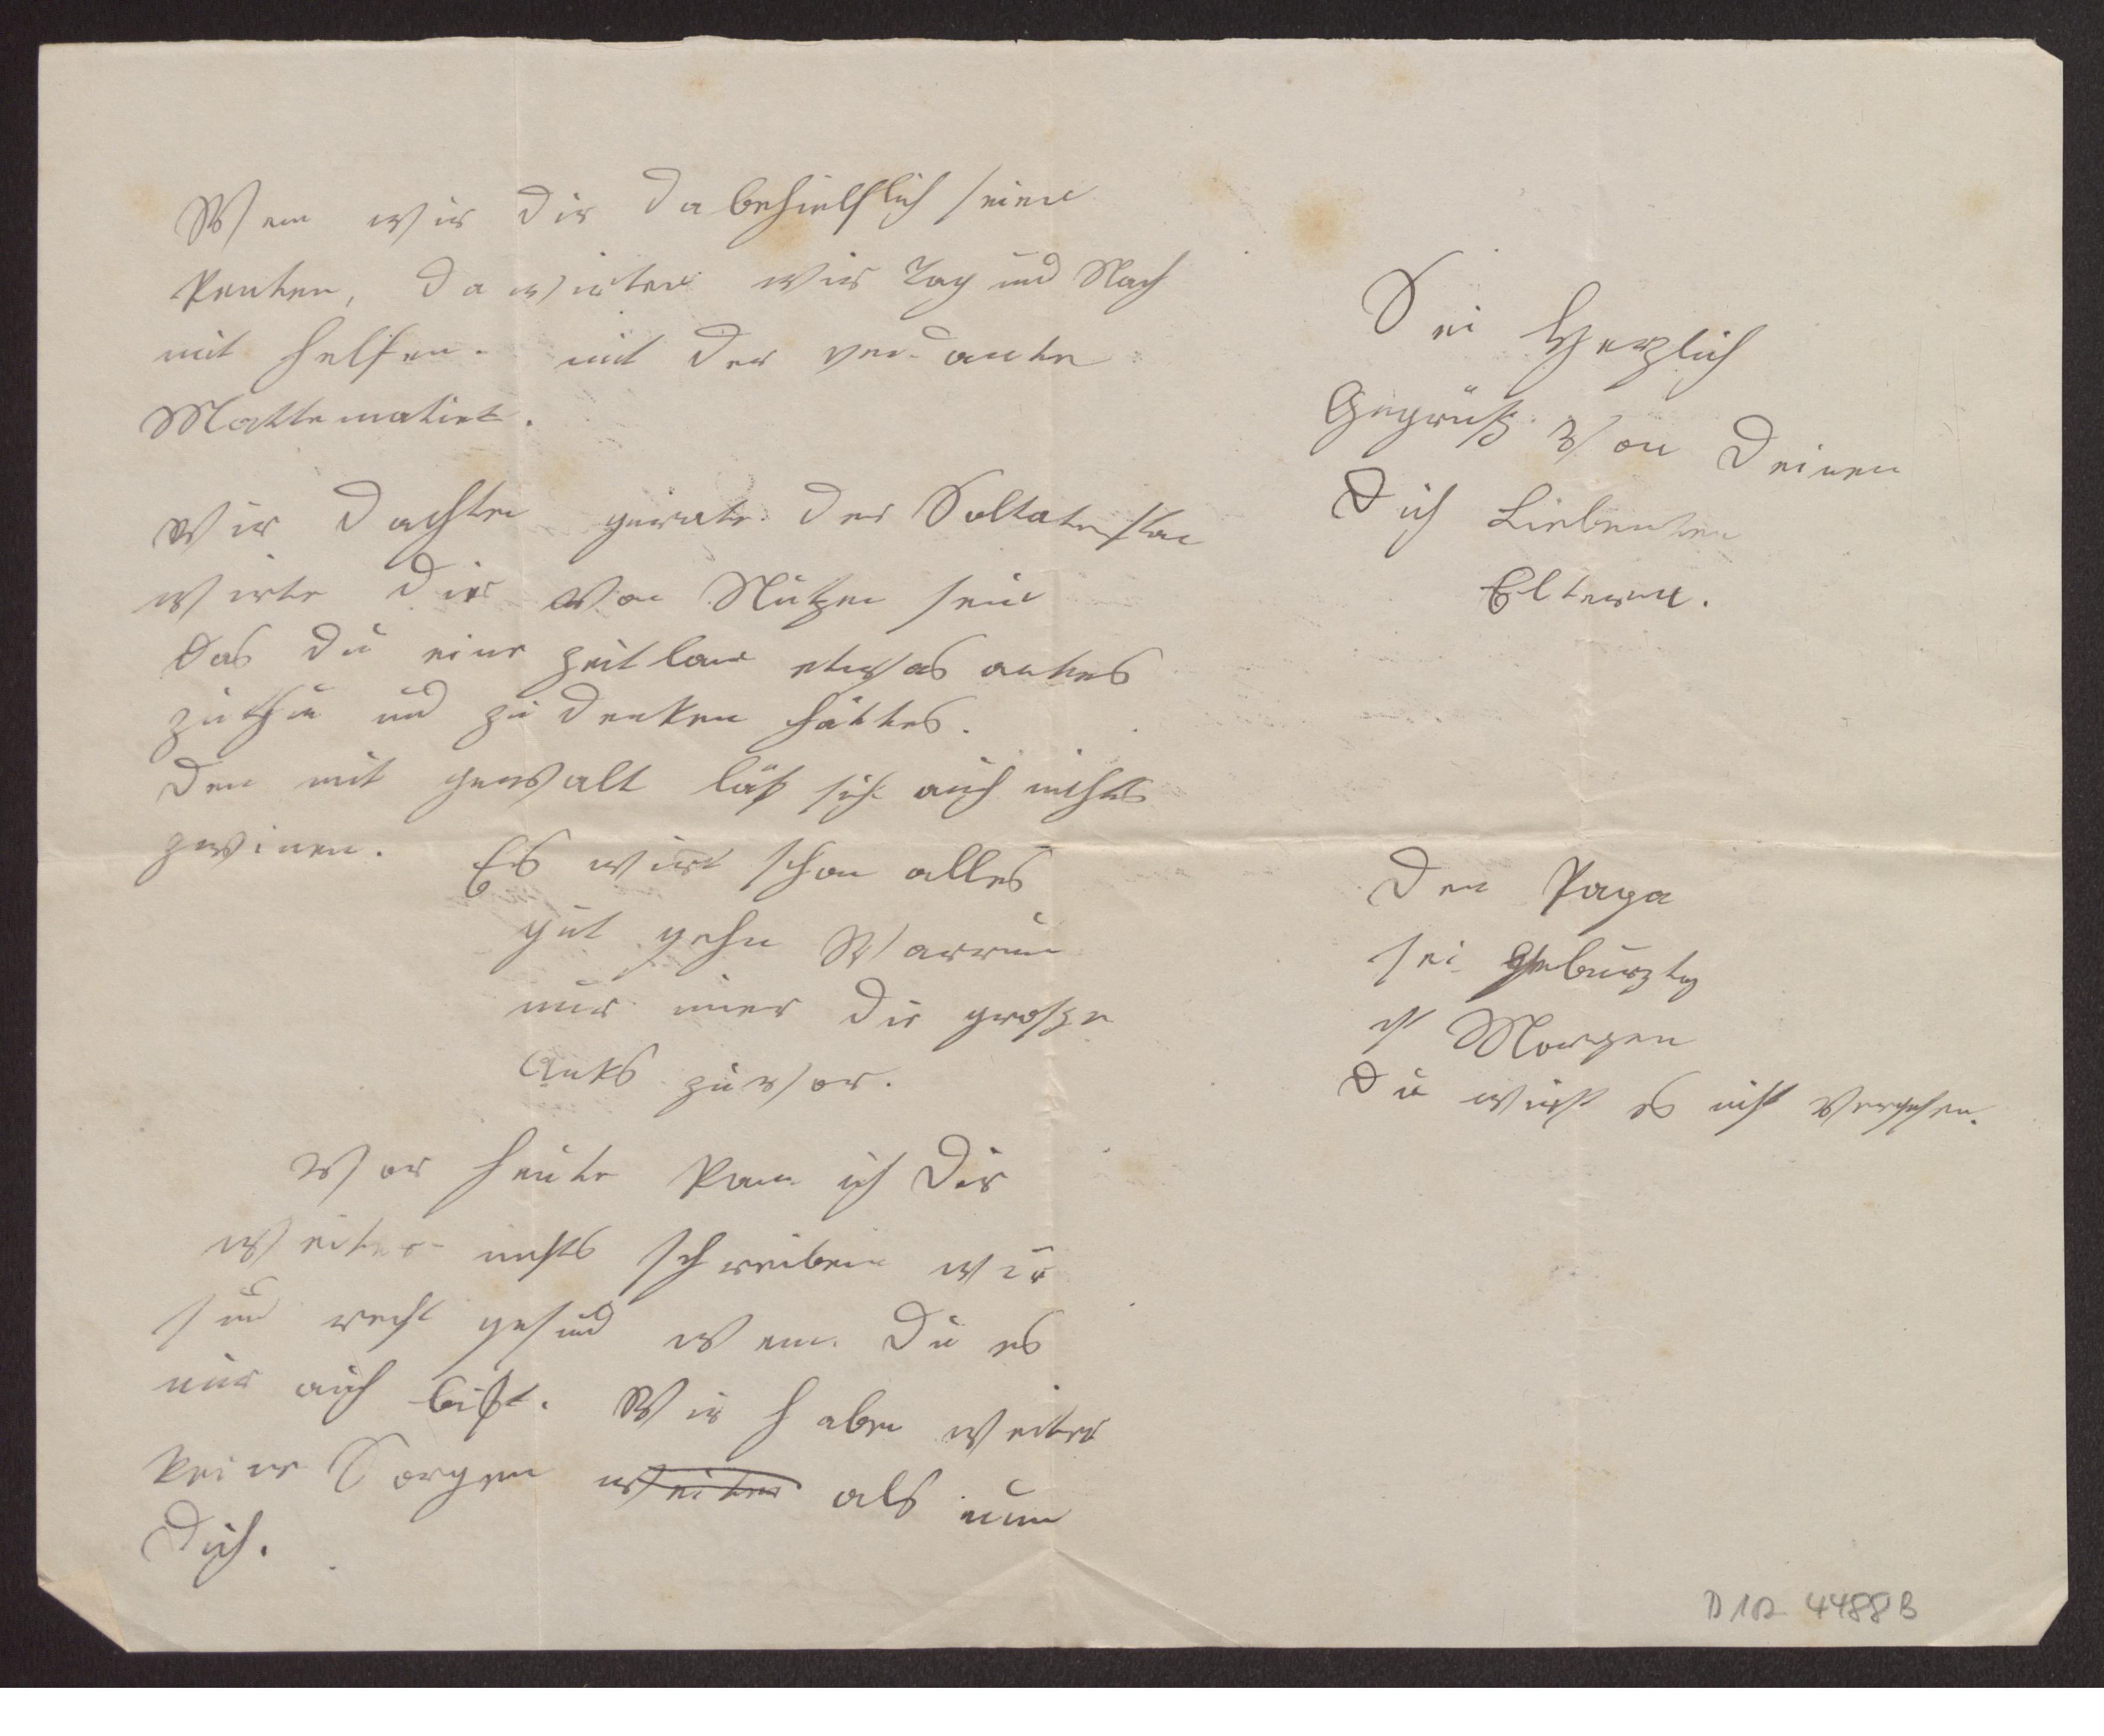 Wen wir dir da behielflich seien
kenten, da wirten wir Tag und Nach
mit helfen. mit der ver-
Mattematiek.
Wir dachten gerate der Soltatenstan
wirte dir von Nutzen sein
das du eine zeitlan etwas antres
zu thun und zu denken hättes.
den mit gewalt läß sich auch nichts
gewinen. Es wirt schon alles
gut gehn Warrum
nur imer die große
Anks zuvor.
Vor heute kann ich Dir
weiter nichts schreiben wir
sind recht gesund wenn Du es
nur auch bist. Wir haben weiter
keine Sorgen weiter als umm
Dich.
Sei Herzlich
Gegrüßt von Deinen
Dich Liebenten
Eltern.
Den Papa
sei Geburztg
ist Morgen
Du wirst es nicht Vergessen.
D 102 4488 B